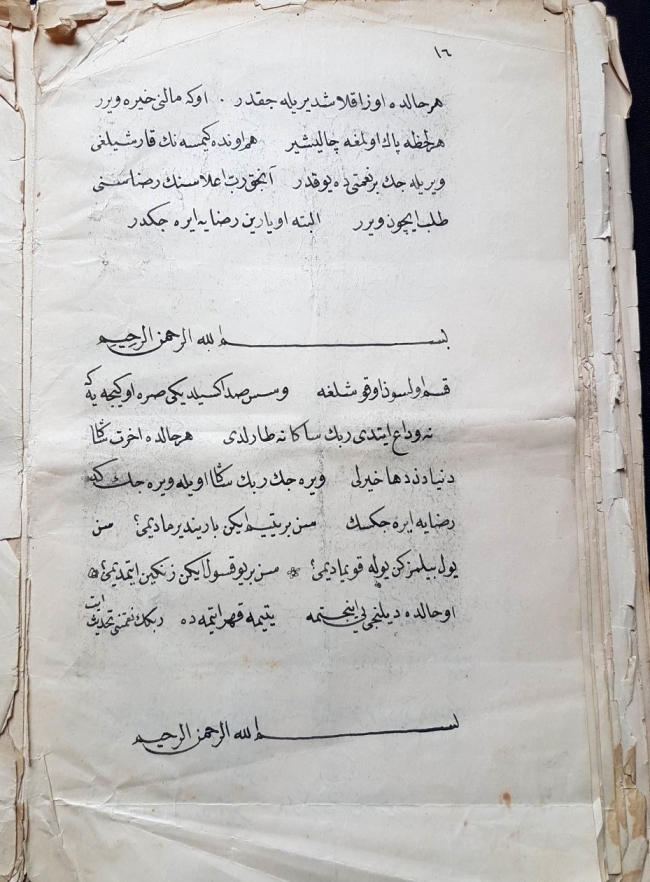 ١٦
هر حالده اوزاقلاشديريله جقدر . اوكه مالنى خيره ويرر
هر لحظه پاك اولمغه چاليشير هم اونده كيمسه نك قارشيلغى
ويريله جك بر نعمتى ده يوقدر آنجق رب اعلاسنك رضاسنى
طلب ايچون ويرر البته او يارين رضايه ايره جكدر
بسم الله الرحمن الرحيم
قسم اولسون او قوشلغه وسس صدا كسيلديكى صره او كيجه يه كه
نه وداع ايتدى ربك ساكا نه طارلدى هر حالده اخرت سڭا
دنيادن دها خيرلى ويره جك ربك سڭا اويله ويره جك كه
رضايه ايره جكسك سن بر يتيم ايكن بارينديرمادىمى؟ سن
يول بيلمز كن يوله قويمادىمى؟ * سن بر يوقسول ايكن زنكين ايتمدىمى؟ *
او حالده ديلنجى يى اينجتمه يتيمه قهر ايتمه ده ربكك نعمتنى تحديث ايت
بسم الله الرحمن الرحيم